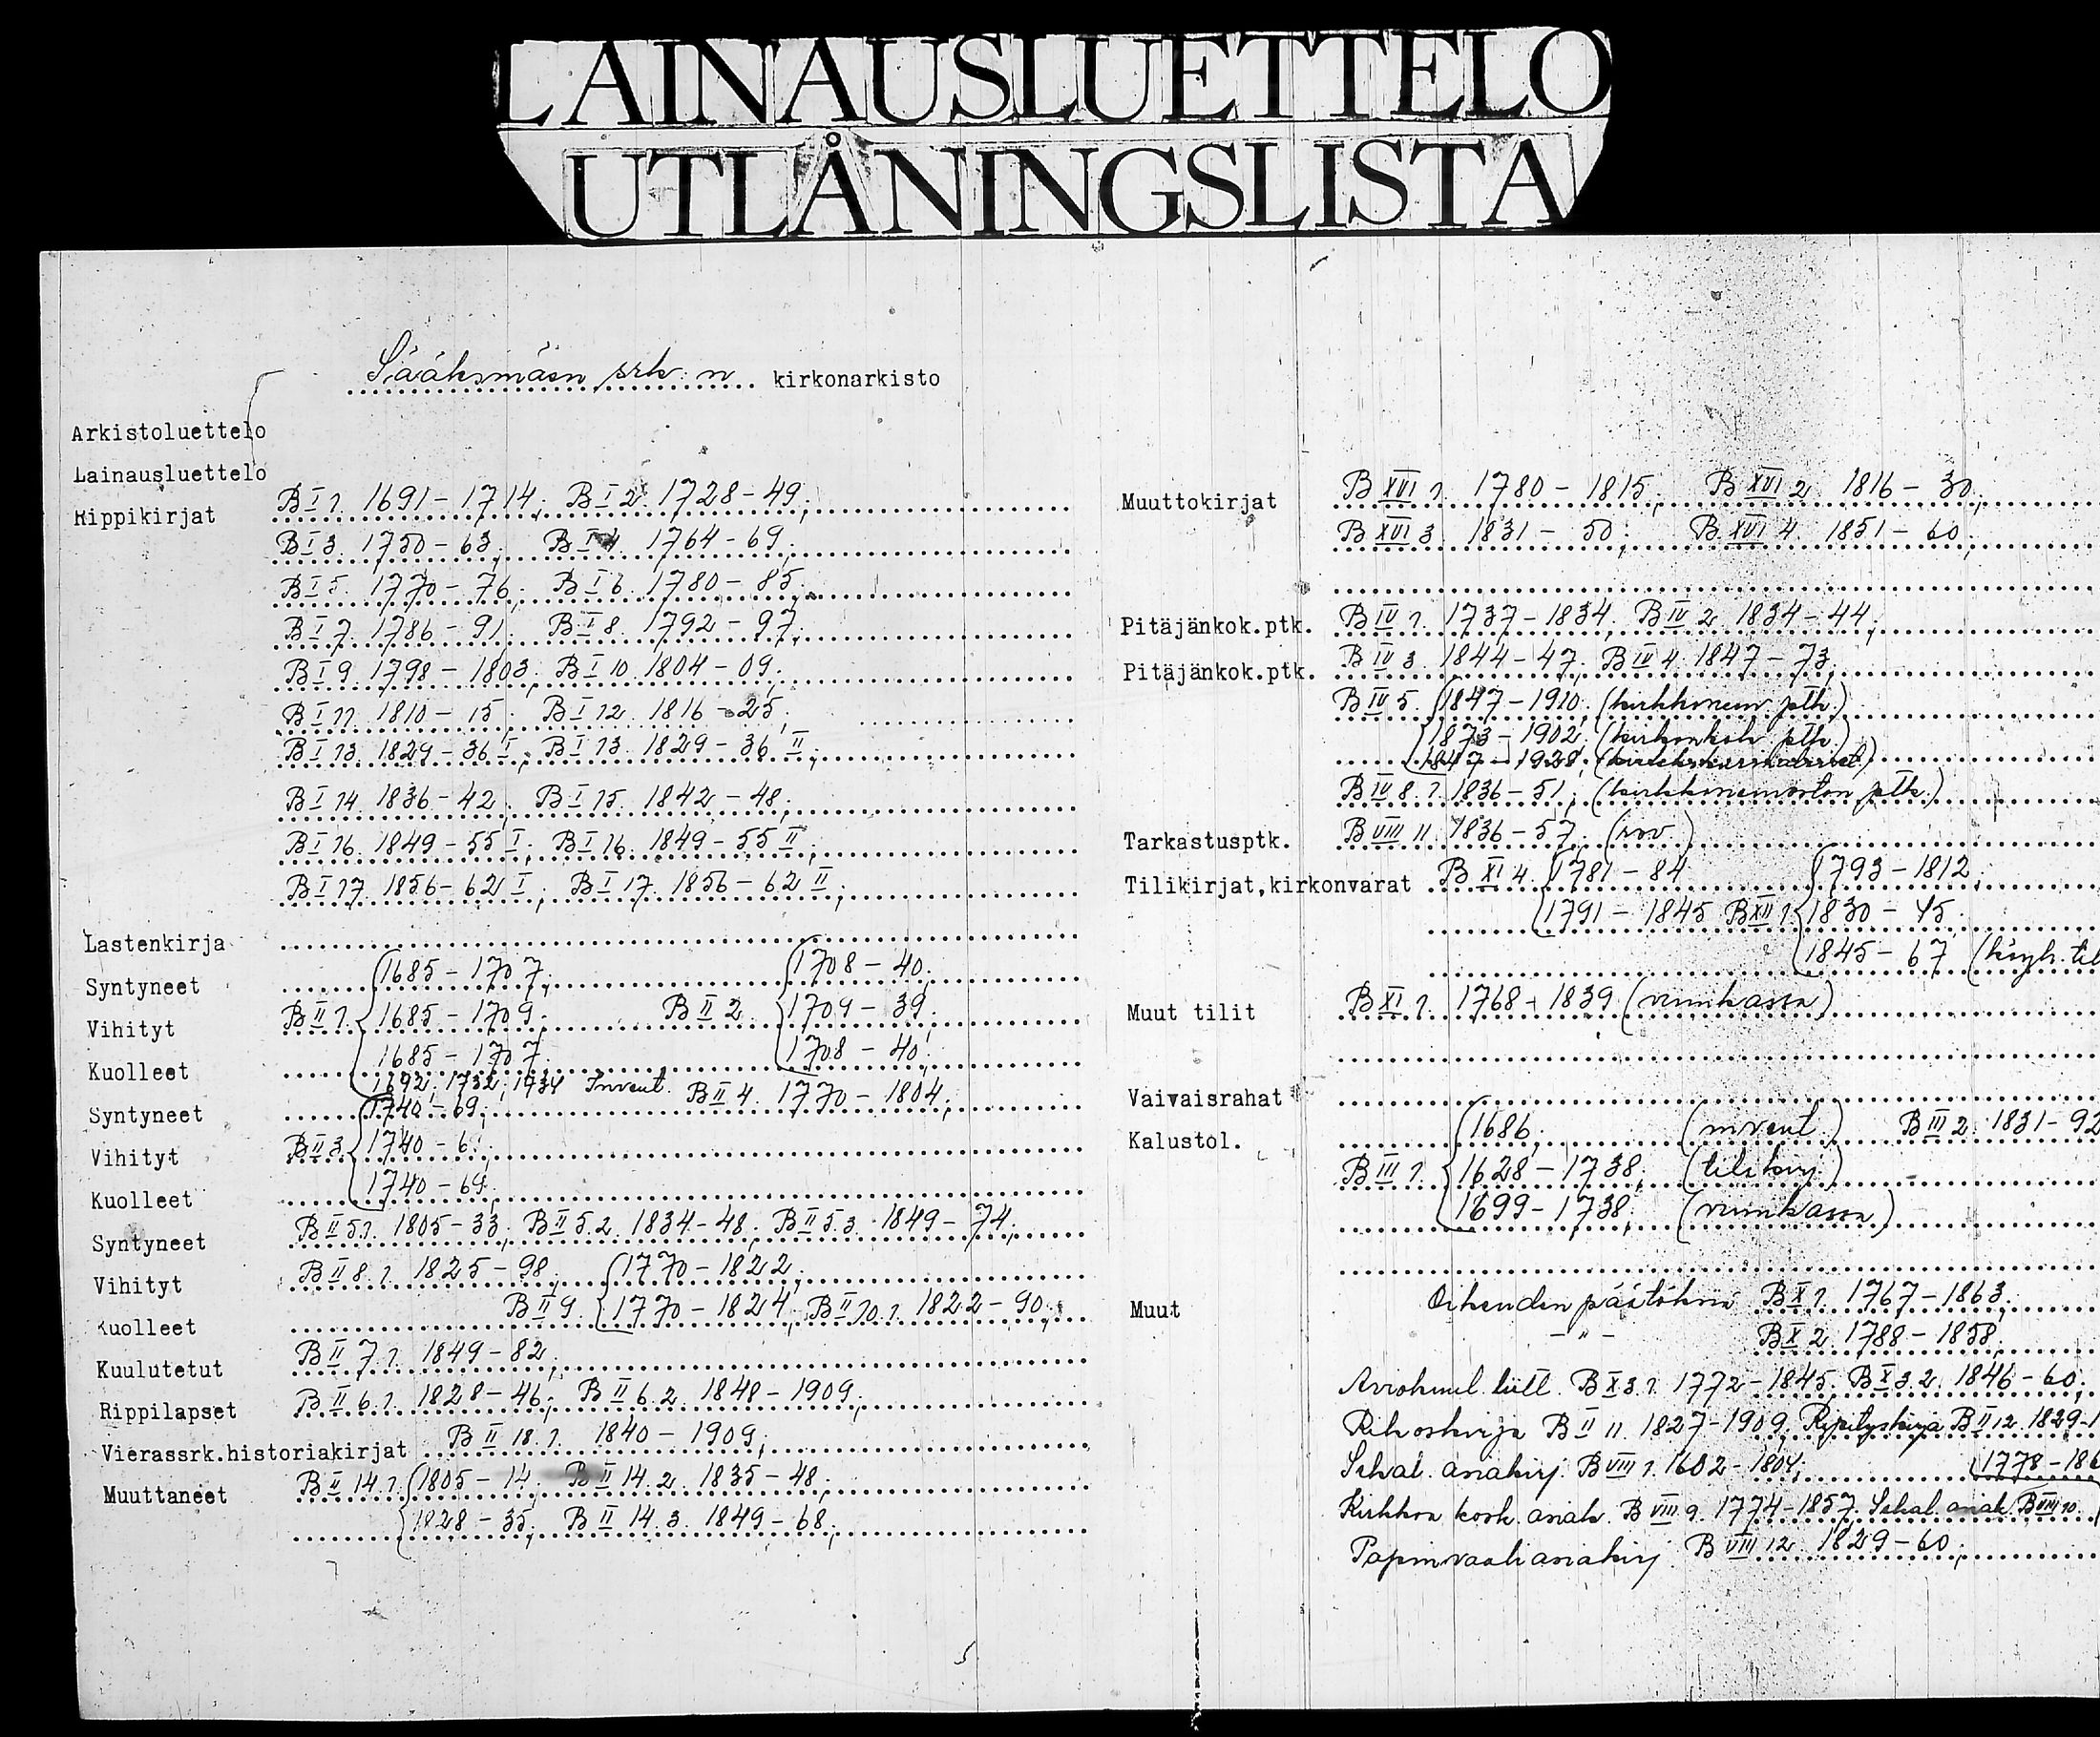 LAINAUSLUETTELO
UTLÅNINGSLISTA
Sääksmäen srk:n kirkonarkisto
Arkistoluettelo
Lainausluettelo
Rippikirjat B I 1. 1691-1714; B I 2. 1728-49;
B I 3. 1750-63; B I 4. 1764-69;
B I 5. 1770-76; B I 6. 1780-85.
B I 7. 1786-91. B I 8. 1792-97;
B I 9. 1798-1803; B I 10. 1804-09;
B I 11. 1810-15; B I 12. 1816-25;
B I 13. 1829-36 I; B I 13. 1829-36 II;
B I 14. 1836-42; B I 15. 1842-48;
B I 16. 1849-55 I; B I 16. 1849-55 II;
B I 17. 1856-62 I; B I 17. 1856-62 II;
Lastenkirja
Syntyneet 1685-1707; 1708-40;
Vihityt B II 1. 1685-1709; B II 2. 1709-39;
Kuolleet 1685-1707. 1708-40;
1692; 1732; 1734 Invent.
Syntyneet 1740-69; B II 4. 1770-1804;
Vihityt B II 3. 1740-6
Kuolleet 1740-69;
Syntyneet B II 5.1. 1805-33; B II 5.2. 1834-48; B II 5.3. 1849-74;
Vihityt B II 8.1. 1825-98; 1770-1822;
Kuolleet B II 9. 1770-1824; B II 10.1. 1822-90;
Kuulutetut B II 7.1. 1849-82;
Rippilapset B II 6.1. 1828-46; B II 6.2. 1848-1909;
Vierassrk.historiakirjat B II 18.1. 1840-1909;
Muuttaneet B II 14.1. 1805-14; B II 14.2. 1835-48;
1828-35; B II 14.3. 1849-68;
Muuttokirjat B XVI 1. 1780-1815; B XVI 2. 1816-30;
B XVI 3. 1831-50; B XVI 4. 1851-60;
Pitäjänkok.ptk. B IV 1. 1737-1834; B IV 2. 1834-44;
Pitäjänkok.ptk. B IV 3. 1844-47; B IV 4. 1847-73;
B IV 5. 1847-1910; (kirkkoneuv. ptk.)
1873-1902; (kirkonkok. ptk.)
1847-1928;
B IV 8.1. 1836-51; (kirkkoneuvoston ptk.)
Tarkastusptk. B VIII 11. 1836-57. (rov.)
Tilikirjat,kirkonvarat B XI 4. 1781-84 1793-1812;
1791-1845 B XII 1. 1830-45.
1845-67
Muut tilit B XI 1. 1768-1839 (viinikassa)
Vaivaisrahat
Kalustol. 1686; (invent.) B III 2. 1831-92
B III 1. 1628-1738; (tilikirj.)
1699-1738; (viinikassa)
Muut Oikeuden päätöksiä B X 1. 1767-1863;
- " - B X 2. 1788-1858;
Aviokuul. luett. B X 3.1. 1772-1845. B X 3.2. 1846-60;
Rikoskirja B II 11. 1827-1909; Ripityskirja B II 12. 1829-1
Sekal. asiakirj. B VIII 1. 1602-1804; 1778-186
Kirkkoa kosk. asiak. B VIII 9. 1774-1857; Sekal. asiak. B VIII 10.
Papinvaaliasiakirj. B VIII 12. 1829-60;